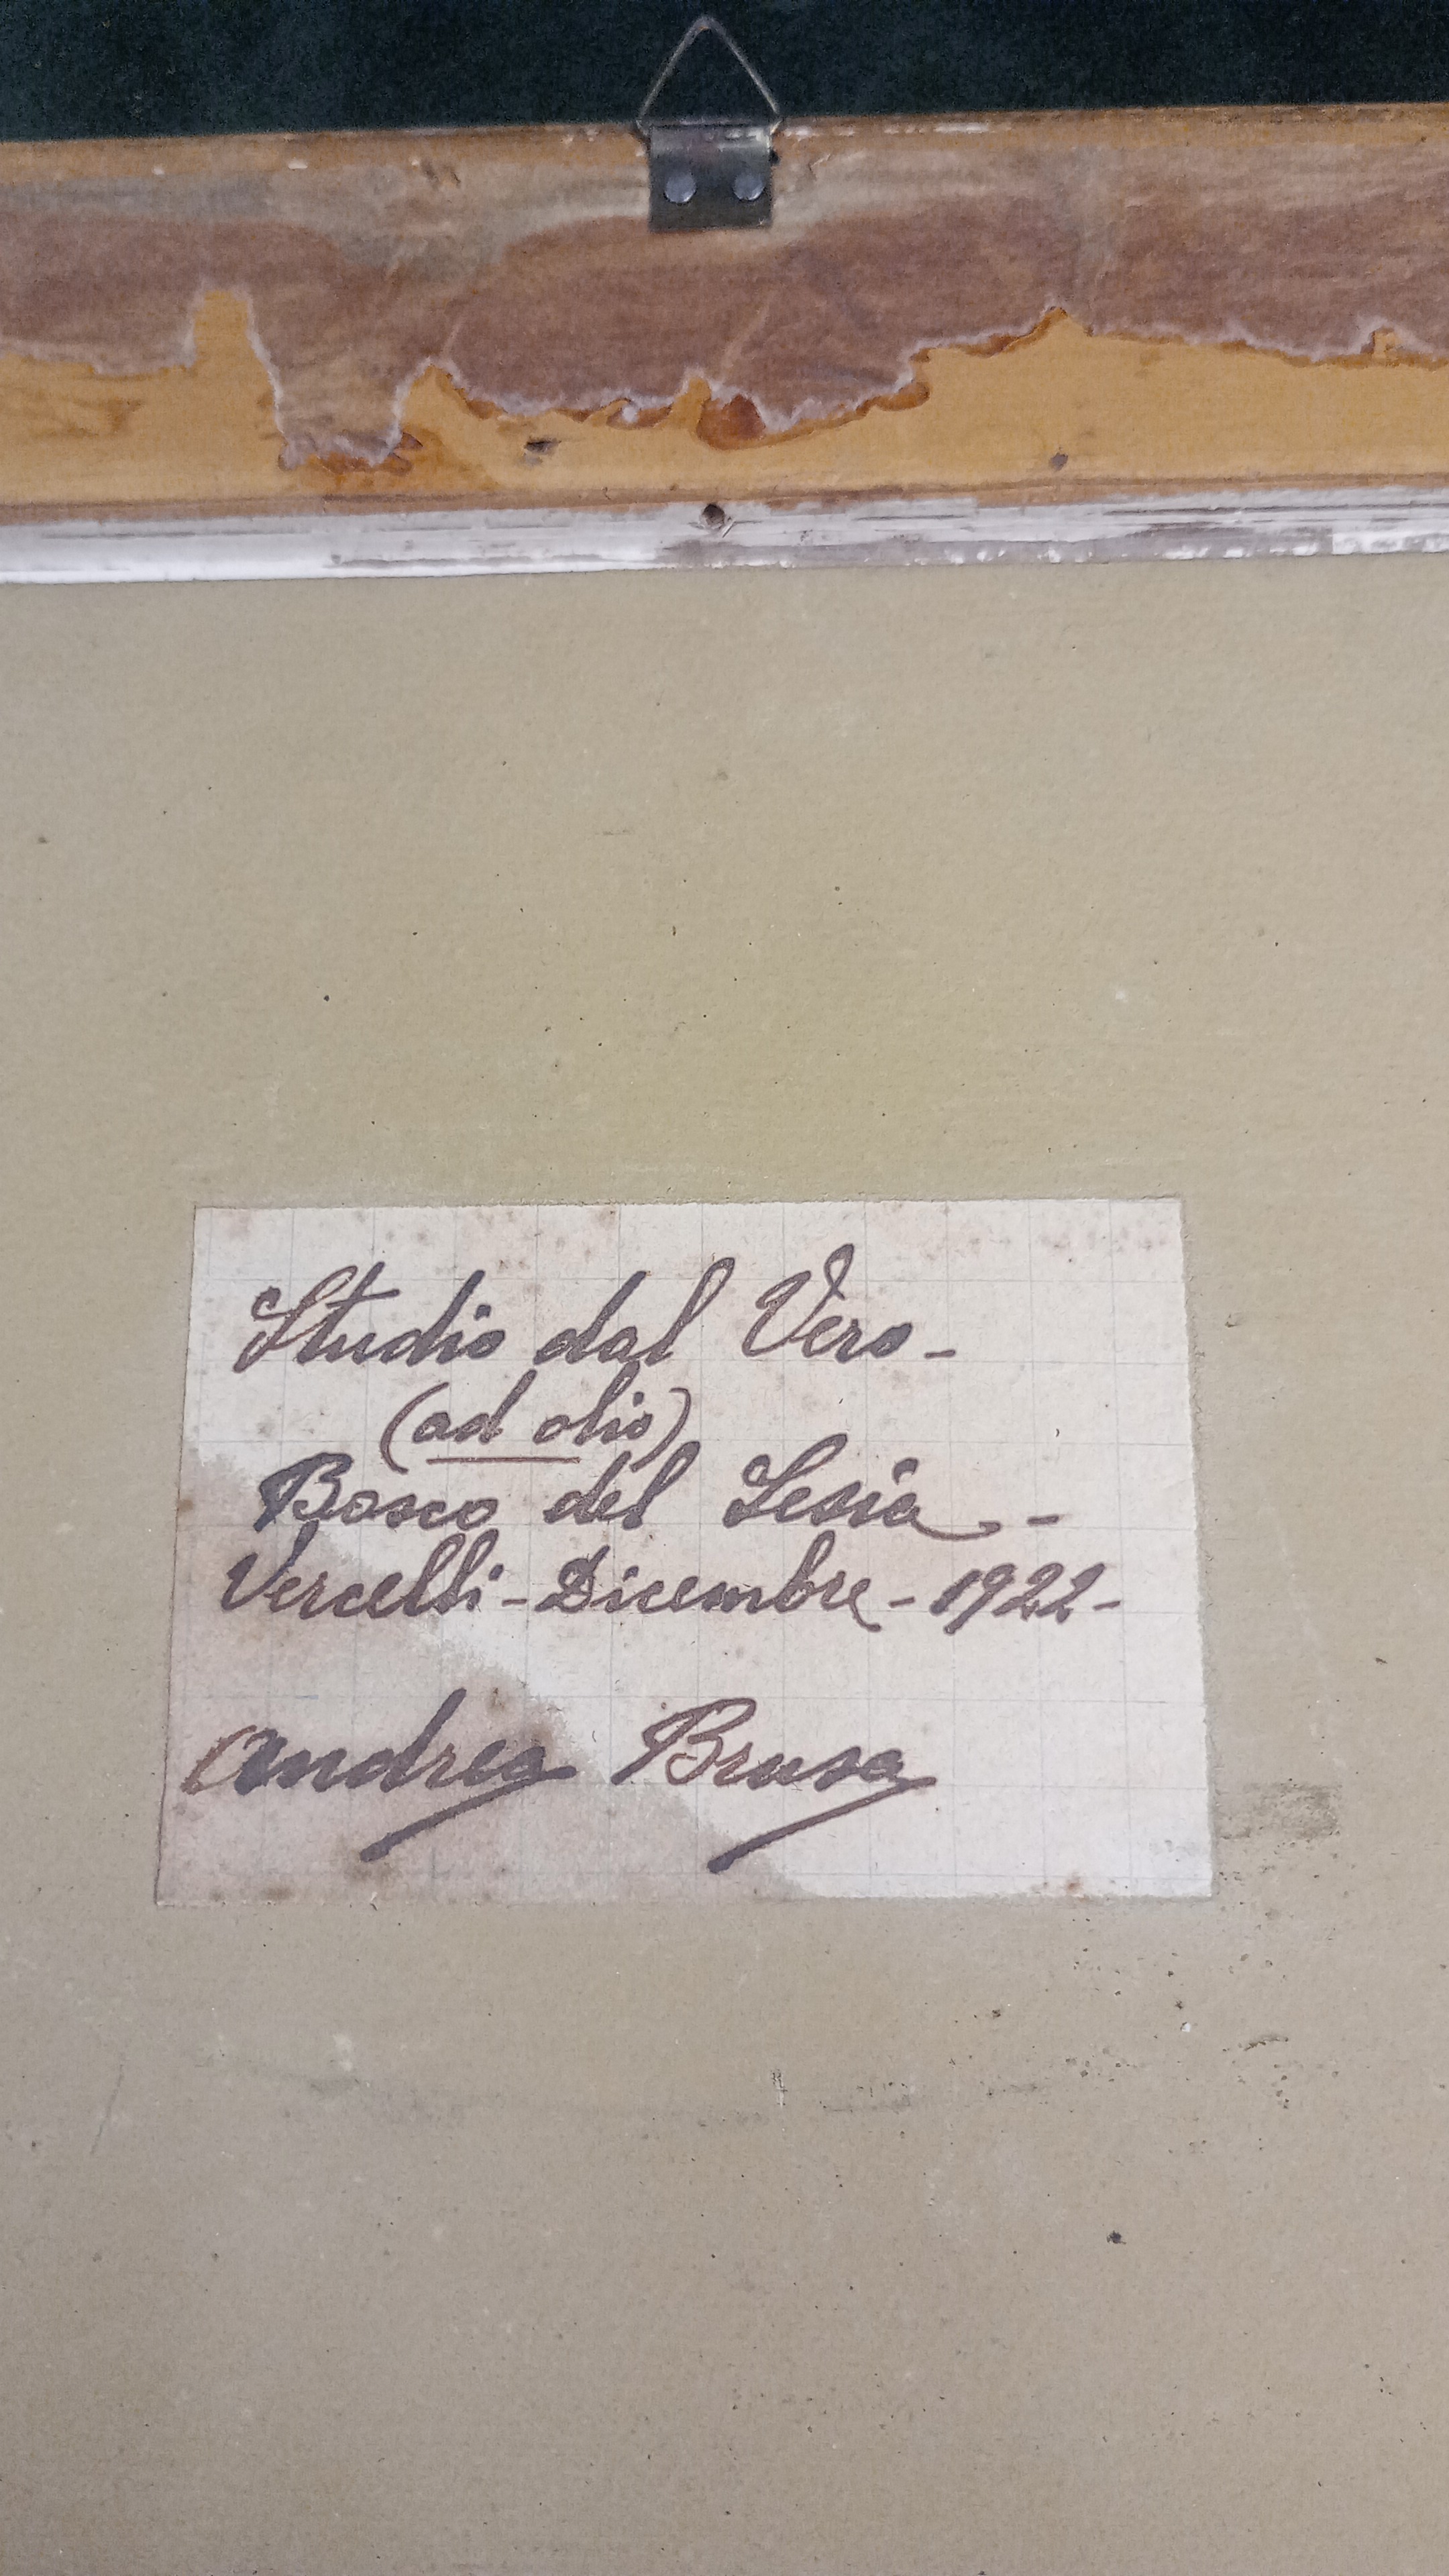 Studio dal Vero -
(ad olio)
Bosco del Sesia -
Vercelli - Dicembre - 1922 -
Andrea Brusa